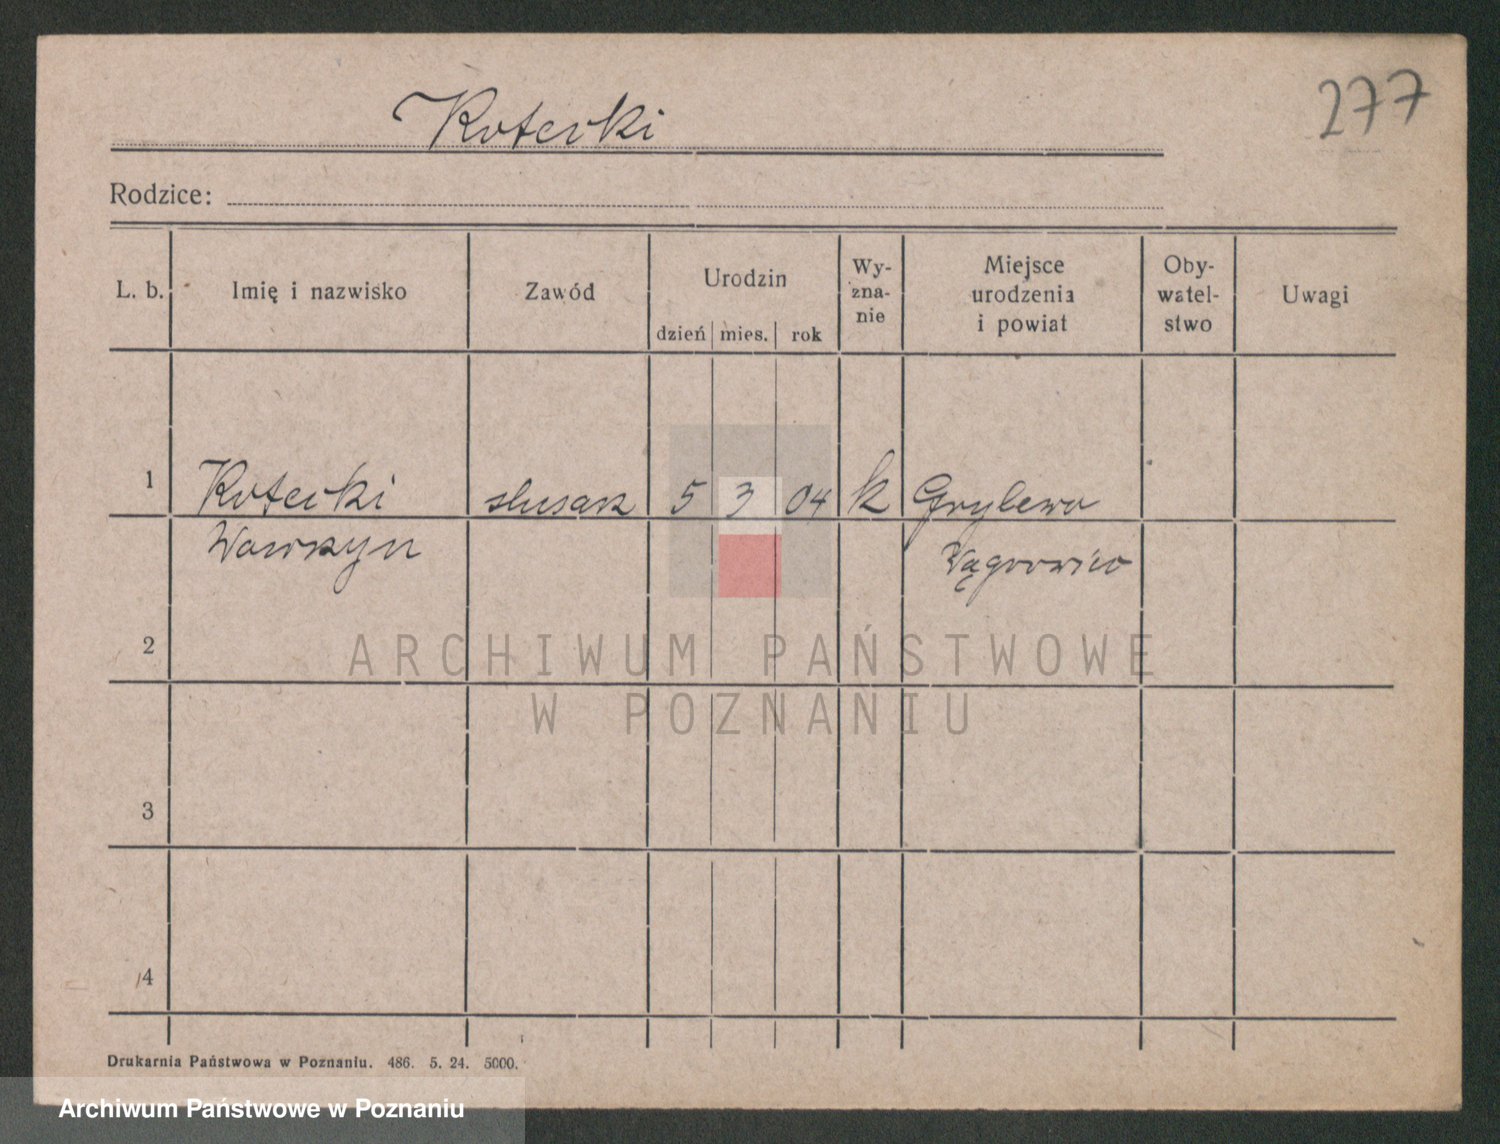 277
Koterki
Rodzice:
L. b. Imię i nazwisko Zawód Urodzin dzień mies. rok Wy-zna-nie Miejsce urodzenia i powiat Oby-watel-stwo Uwagi
1 Koterki ślusarz 5 3 04 k Grylewo
Wawrzyn Wągrowiec
2
3
4
ARCHIWUM PAŃSTWOWE
W POZNANIU
Drukarnia Państwowa w Poznaniu. 486. 5. 24. 5000.
Archiwum Państwowe w Poznaniu